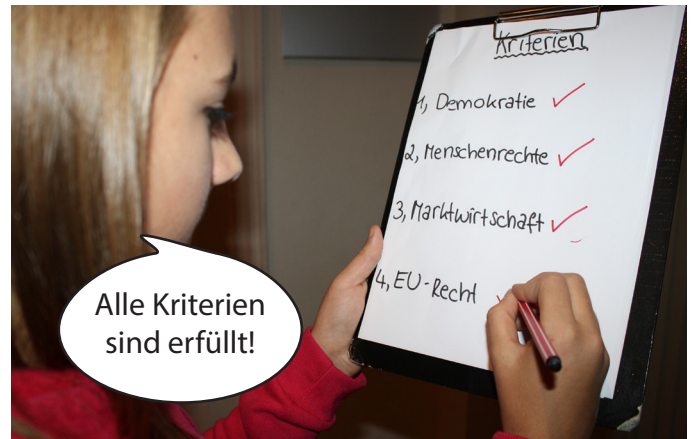 Kriterien
1, Demokratie
2, Menschenrechte
3, Marktwirtschaft
4, EU-Recht
Alle Kriterien
sind erfüllt!